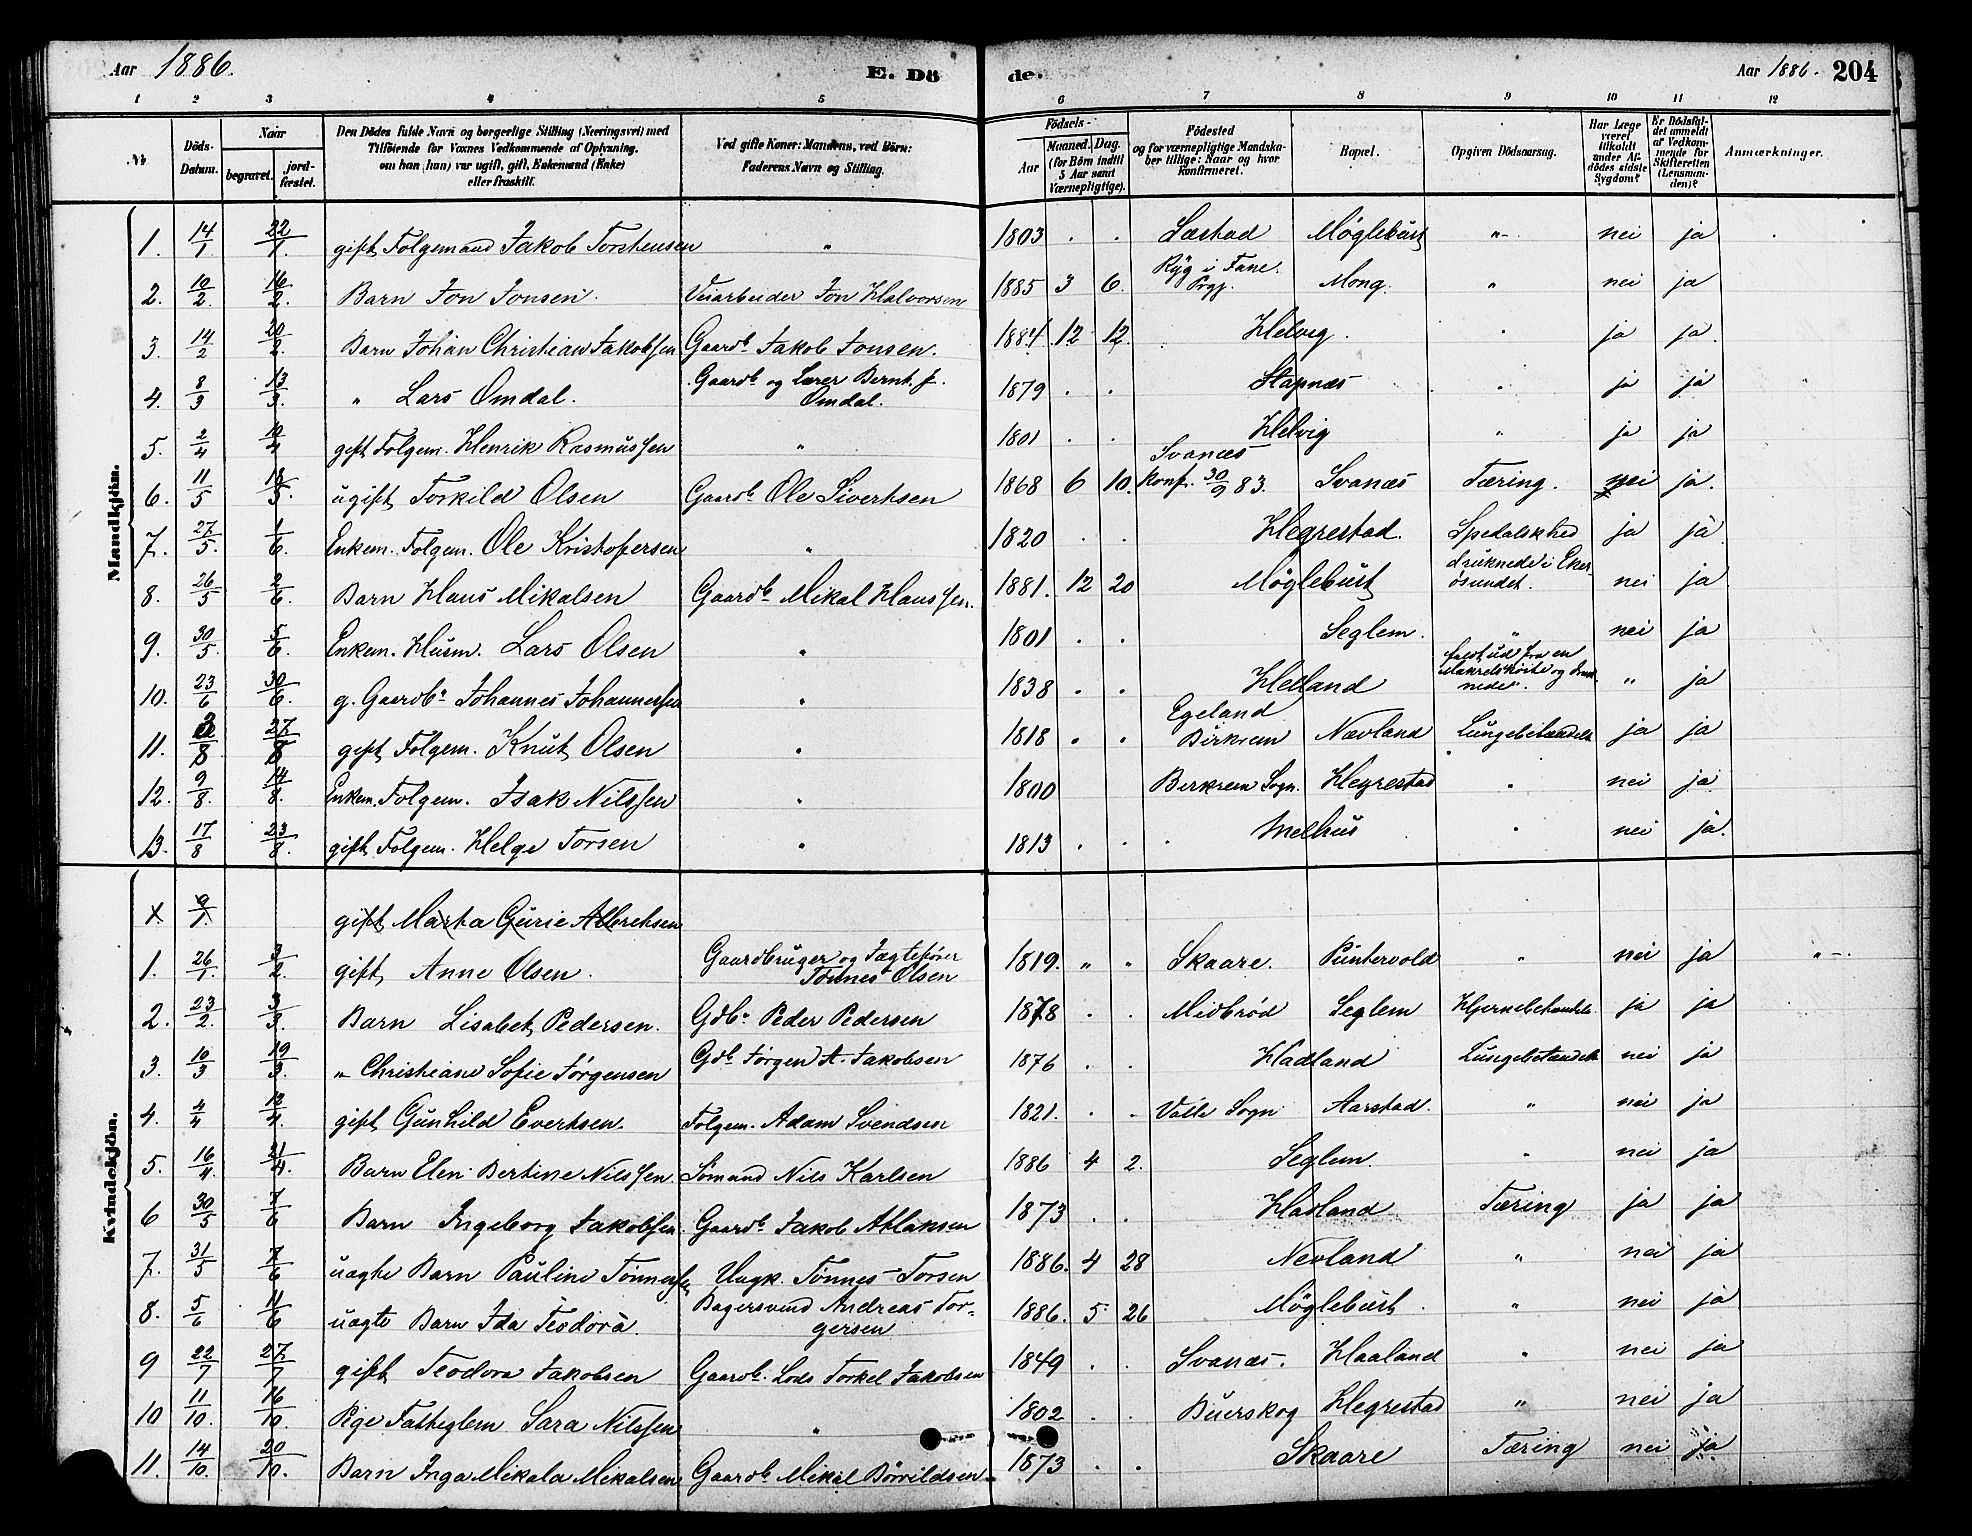 Aar 1886. E. Dö de. Aar 1886. 204
1 2 3 4 5 6 7 8 9 10 11 12
No Döds-Datum. Naar begravet. jordfæstet. Den Dödes fulde Navn og borgerlige Stilling (Næringsvei) med Tilföiende for Voxnes Vedkommende af Oplysning, om han (hun) var ugift, gift, Enkemand (Enke) eller fraskilt. Ved gifte Koner: Mandens, ved Börn: Faderens Navn og Stilling. Födsels- Aar Maaned. Dag. (for Börn indtil 5 Aar samt Værnepligtige). Födested og for værnepligtige Mandskaber tillige: Naar og hvor konfirmeret. Bopæl. Opgiven Dödsaarsag. Har Læge været tilkaldt under Afdödes sidste Sygdom? Er Dödsfaldet anmeldt af Vedkommende for Skifteretten (Lensmanden)? Anmærkninger.
Mandkjön.
1. 14/1 22/1. gift Folgemand Jakob Torstensen " 1803 . . Sæstad Møglebust " nei ja
2. 10/2 16/2. Barn Jon Jonsen. Veiarbeider Jon Halvorsen 1885 3 6. Ryg i Fane Prgj. Mong. " nei ja
3. 14/2 20/2. Barn Johan Christian Jakobsen Gaardb. Jakob Jonsen. 1884 12 12. Helvig. " ja ja.
4. 8/3 13/3. " Lars Omdal. Gaardb. og Lærer Bernt J. Omdal. 1879 . . Stapnæs " ja ja
5. 2/4 10/4 gift Folgem. Henrik Rasmussen " 1801 . . Helvig " ja ja
6. 11/5 18/5. ugift Torkild Olsen Gaardb. Ole Sivertsen 1868 6 10. Svanæs Konf. 30/9 83. Svanæs Tæring. nei ja.
7. 27/5. 1/6. Enkem. Folgem. Ole Kristofersen " 1820 . . Hegrestad. Spedalskhed ja ja
8. 26/5 2/6. Barn Hans Mikalsen Gaardb. Mikal Hanssen. 1881. 12 20 Møglebust druknede i Ekersundet. nei ja
9. 30/5 5/6 Enkem. Husm. Lars Olsen " 1801 . . Seglem. " nei ja
10. 23/6 30/6. g. Gaardbr. Johannes Johannessen " 1838 . . Helland faldt ud fra en Makrelskøite og druknede. " ja
11. 2/8 27/8 gift Folgem. Knut Olsen " 1818 . . Egeland Birkrem Nævland Lungebetændelse ja ja
12. 9/8. 14/8. Enkem. Folgem. Isak Nilssen " 1800 Birkrem Sogn. Hegrestad " nei ja
13. 17/8 23/8. gift Folgem. Helge Torsen " 1813 . . Melhus " nei ja.
Kvindekjön.
x. 9/1. gift Marta Gurie Albrektsen
1. 26/1. 3/2. gift Anne Olsen. Gaardbruger og Jægtefører Tønnes Olsen 1819. " " Skaare. Puntervold " nei ja "
2. 23/2. 3/3. Barn Lisabet Pedersen. Gdbr. Peder Pedersen 1878 . . Midbrød Seglem Hjernebetændelse. ja ja
3. 10/3 19/3. " Christiane Sofie Jørgensen Gdb. Jørgen A. Jakobsen 1876 . . Hadland Lungebetændelse nei ja
4. 4/4 12/4. gift Gunhild Evertsen. Folgem. Adam Svendsen 1821. . . Valle Sogn Aarstad. " nei ja
5. 16/4 21/4. Barn Elen Bertine Nilssen Sømand Nils Karlsen 1886 4 2. Seglem. " nei ja
6 30/5 7/6 Barn Ingeborg Jakobsen. Gaardb. Jakob Atlaksen 1873 . . Hadland Tæring ja ja
7. 31/5 7/6 uægte Barn Pauline Tønnessen Ungk. Tønnes Torsen 1886. 4 28 Nevland " nei ja
8. 5/6 11/6 uægte Barn Ida Teodora. Bagersvend Andreas Torgersen 1886. 5 26 Møglebust. " nei ja
9 22/7 27/7 gift Teodora Jakobsen Gaardb. Lods Torkel Jakobsen 1849 . . Svanæs. Haaland " nei ja
10 11/10. 16/10. Pige Fattiglem Sara Nilssen " 1802 . . Buerskog Hegrestad " nei ja
11. 14/10. 20/10. Barn Inga Mikala Mikalsen Gaardb. Mikal Børrildsen 1873 . . Skaare Tæring nei ja